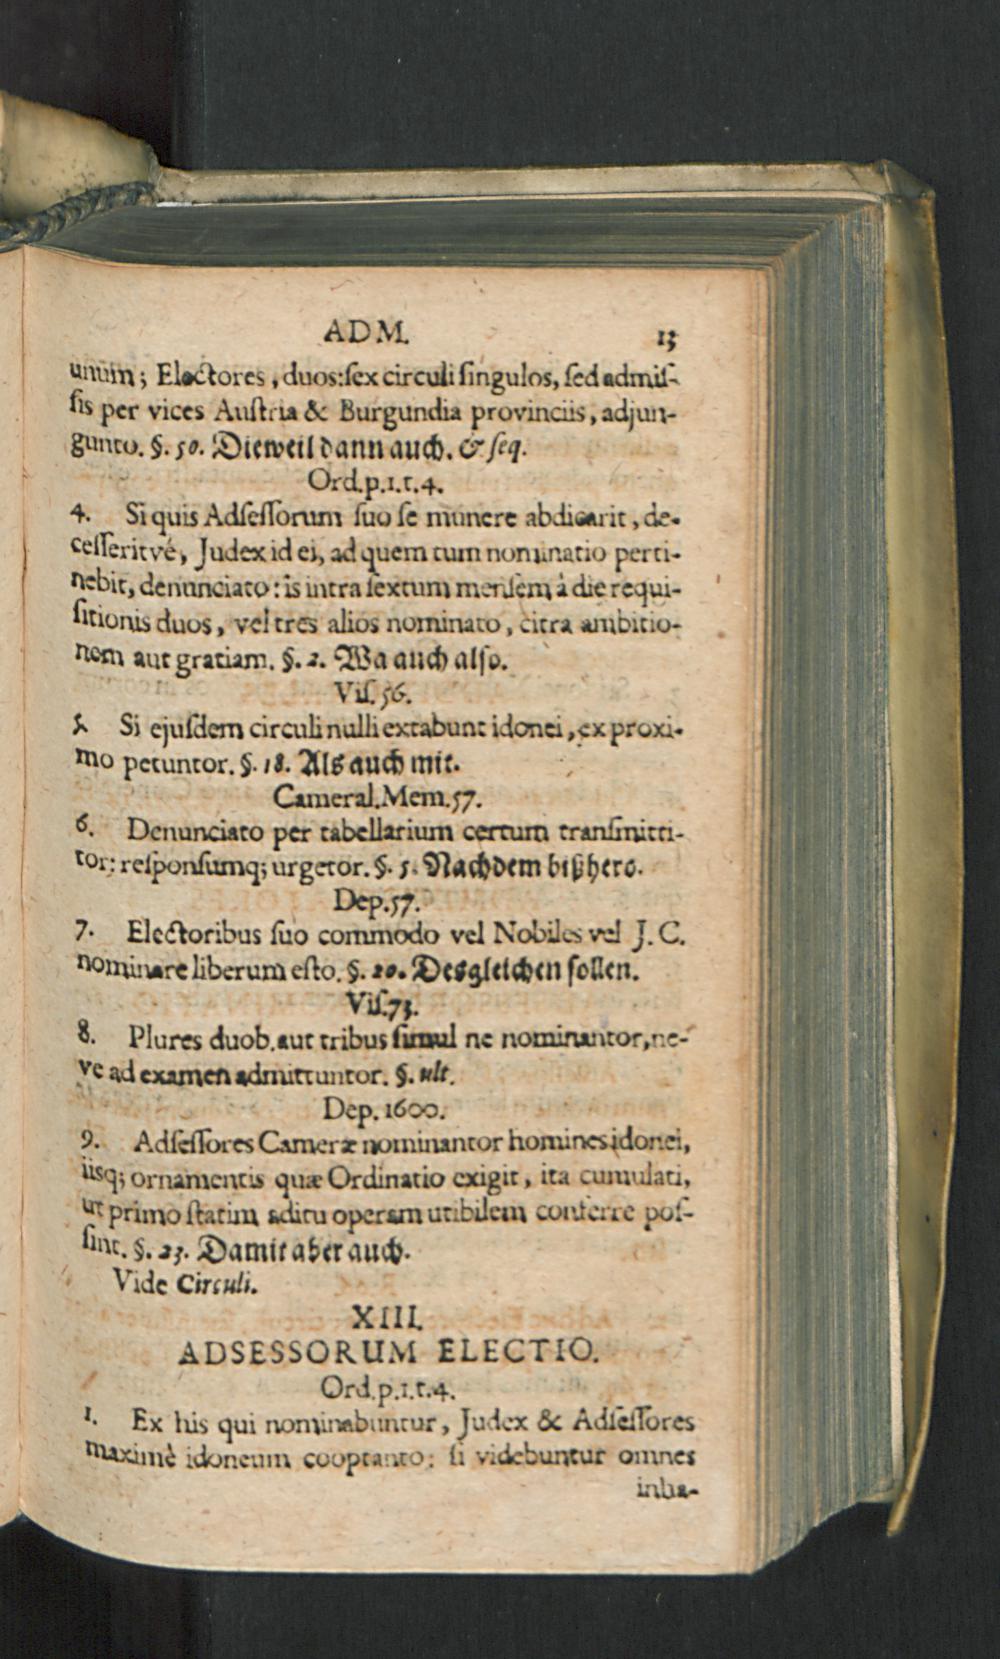 ADM. 13
unum; Electores, duos: sex circuli singulos, sed admis-
sis per vices Austria & Burgundia provinciis, adjun-
gunto. §. 50. Dieweil dann auch. & seq.
Ord.p.1.t.4.
4. Si quis Adsessorum suo se munere abdicarit, de-
cesseritvé, Judex id ei, ad quem tum nominatio perti-
nebit, denunciato: is intra sextum mensem à die requi-
sitionis duos, vel tres alios nominato, citra ambitio-
nem aut gratiam. §. 2. Wa auch also.
Vis. 56.
5. Si ejusdem circuli nulli extabunt idonei, ex proxi-
mo petuntor. §. 18. Als auch mit.
Cameral. Mem. 57.
6. Denunciato per tabellarium certum transmitti-
tor: responsumq; urgetor. §. 5. Nachdem bißhero.
Dep. 57.
7. Electoribus suo commodo vel Nobiles vel J. C.
nominare liberum esto. §. 20. Desgleichen sollen.
Vis. 73.
8. Plures duob. aut tribus simul ne nominantor, ne-
ve ad examen admittuntor. §. ult.
Dep. 1600.
9. Adsessores Cameræ nominantor homines idonei,
iisq; ornamentis quæ Ordinatio exigit, ita cumulati,
ut primo statim aditu operam utibilem conferre pos-
sint. §. 23. Damit aber auch.
Vide Circuli.
XIII.
ADSESSORUM ELECTIO.
Ord.p.1.t.4.
1. Ex his qui nominabuntur, Judex & Adsessores
maximè idoneum cooptanto: si videbuntur omnes
inha-